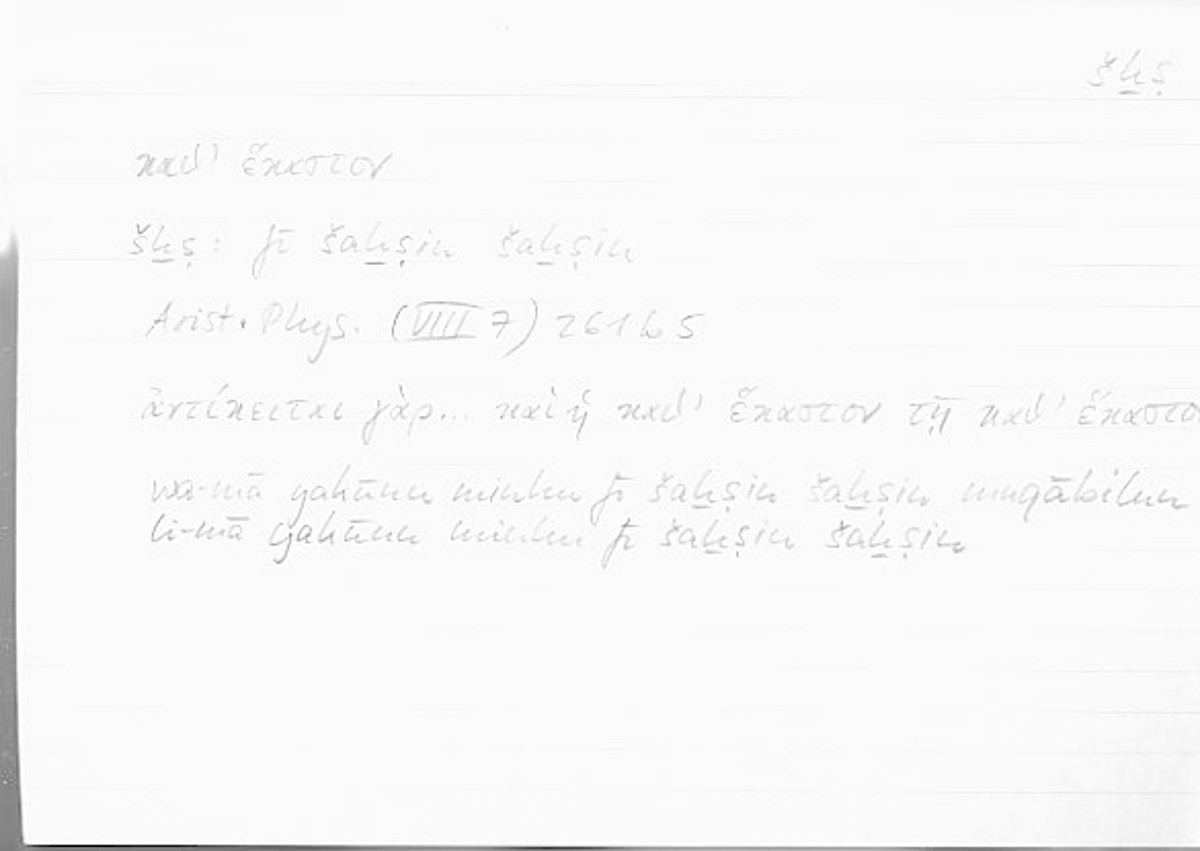 šẖṣ
καθ' ἕκαστον
šẖṣ: fī šaẖṣin šaẖṣin
Arist. Phys. (VIII 7) 261 b 5
ἀντίκειται γὰρ... καὶ ἡ καθ' ἕκαστον τῇ καθ' ἕκαστον
wa-mā yakūnu minhu fī šaẖṣin šaẖṣin muqābilun
li-mā yakūnu minhu fī šaẖṣin šaẖṣin